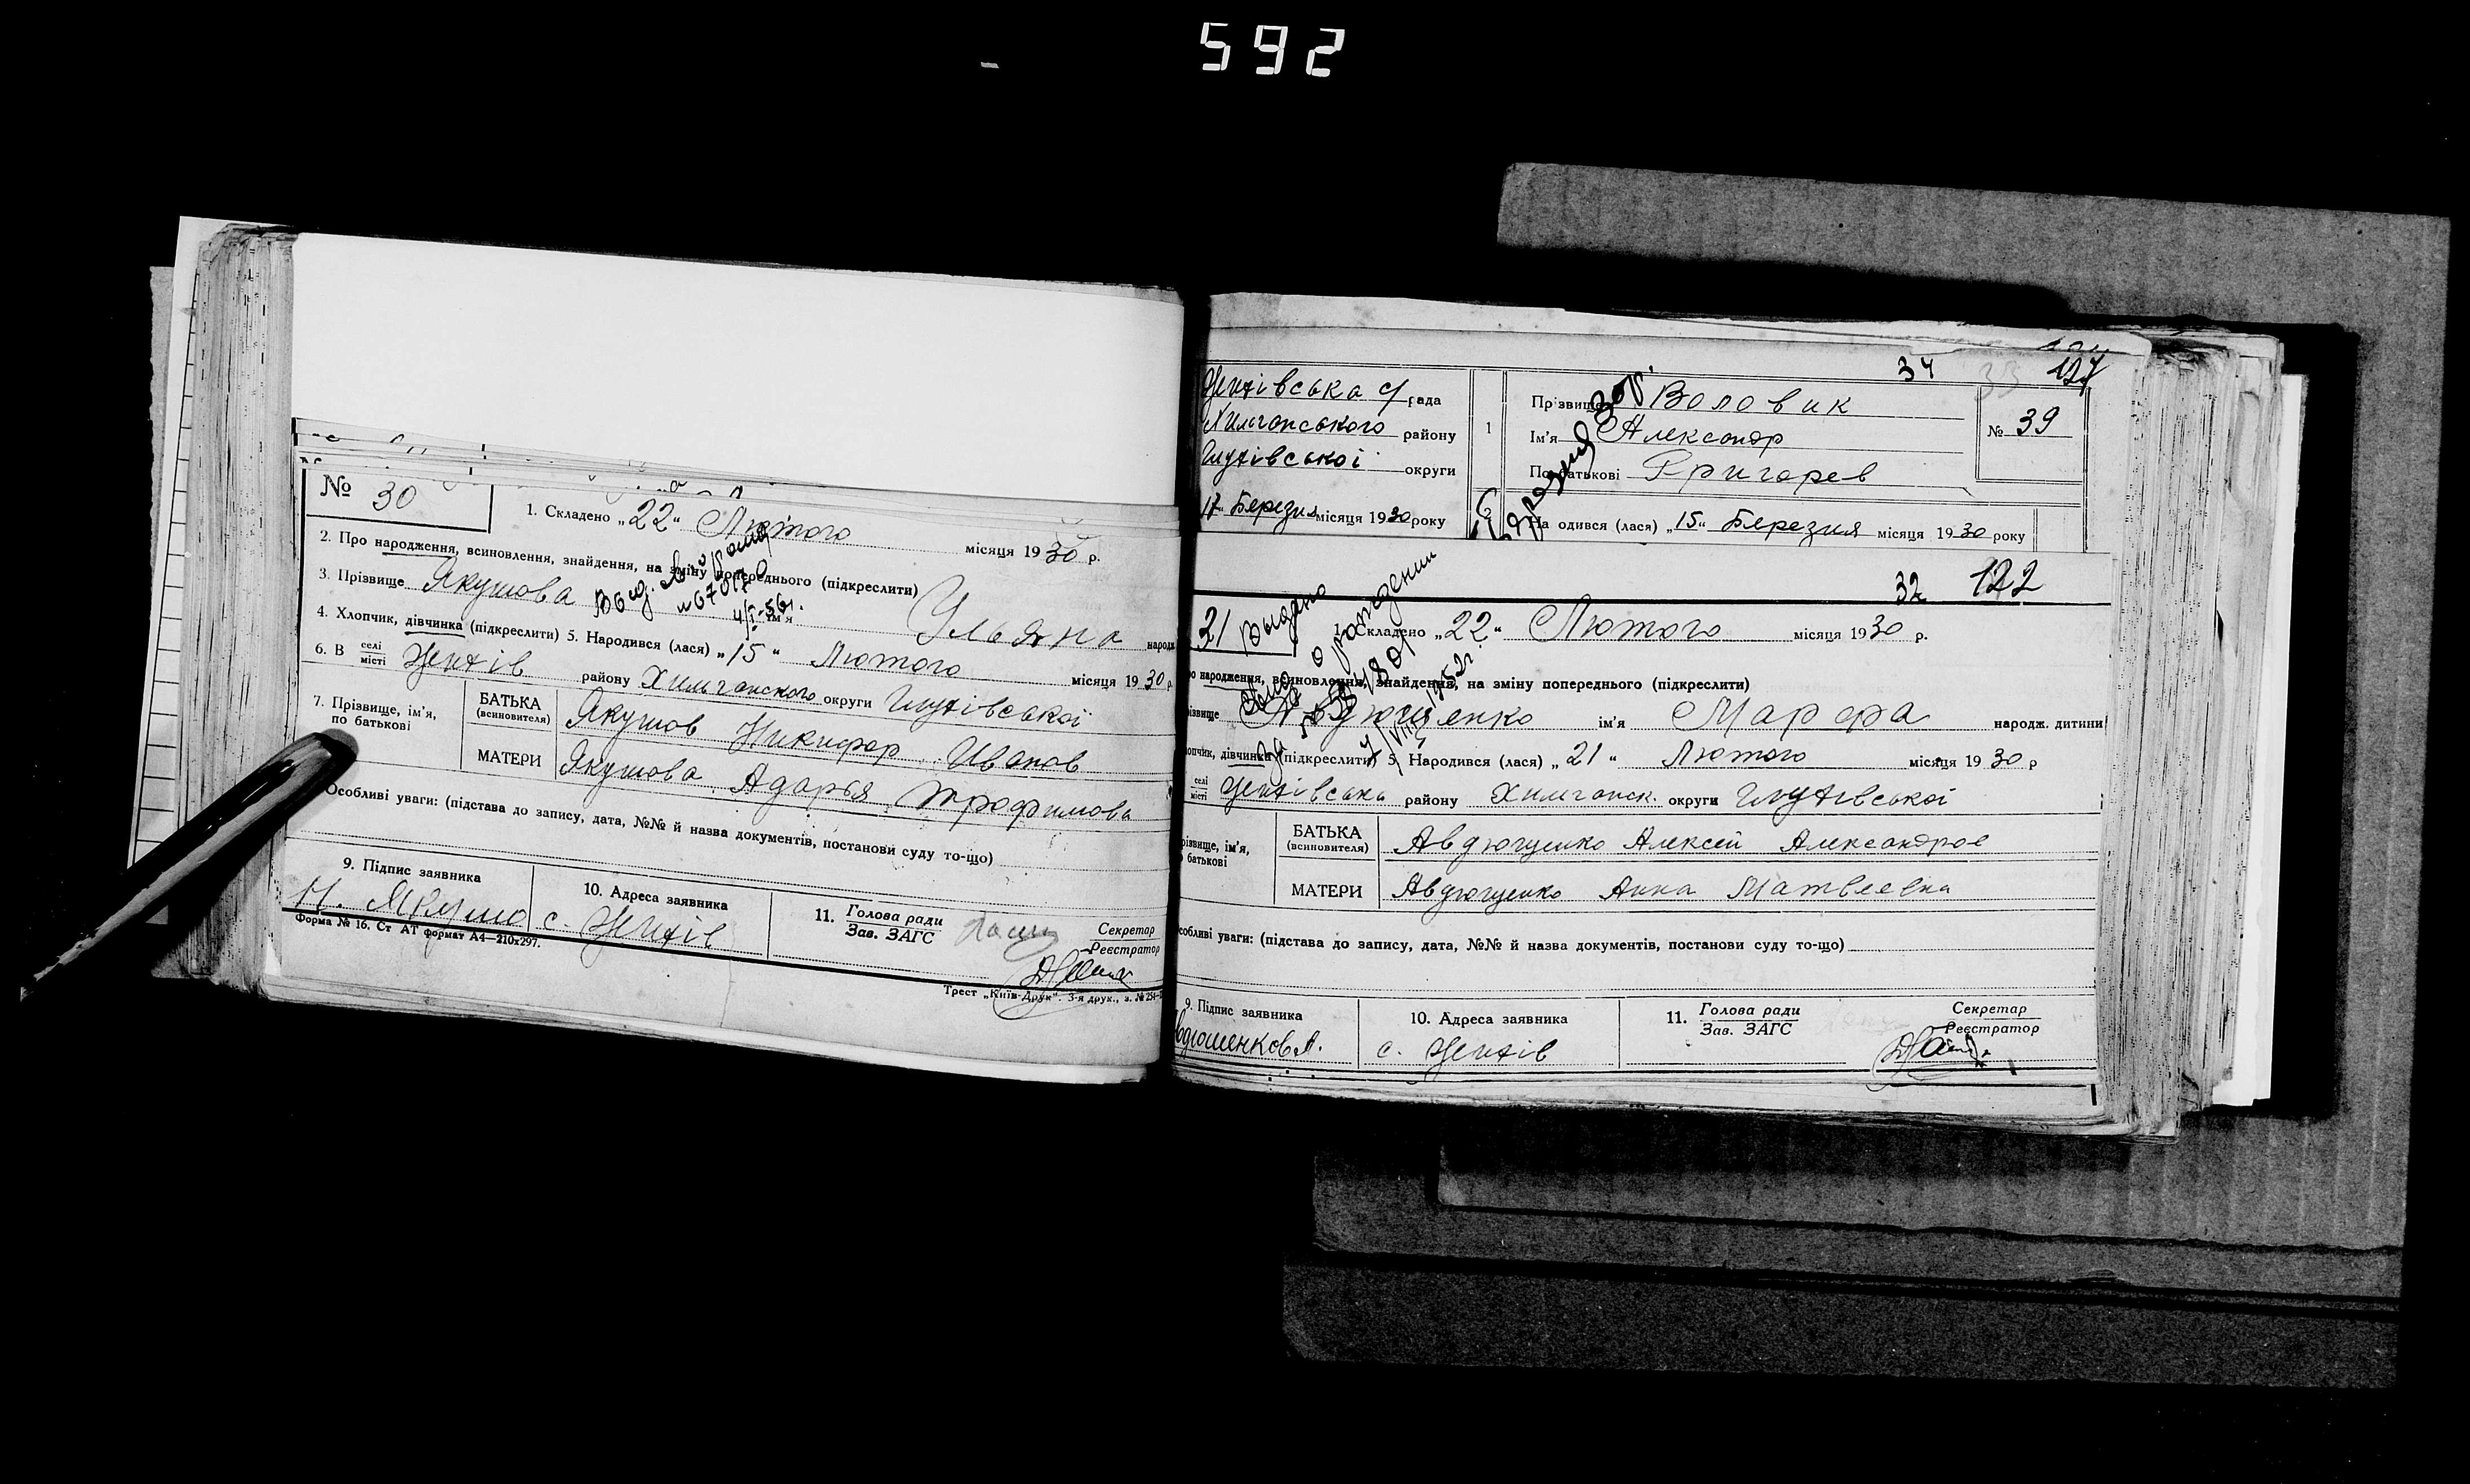 592
№ 30
1. Складено „22“ Лютого місяця 1930 р.
2. Про народження, всиновлення, знайдення, на зміну попереднього (підкреслити)
3. Прізвище Якушова ім'я Ульяна народж
4. Хлопчик, дівчинка (підкреслити) 5. Народився (лася) „15“ Лютого місяця 1930 р
6. В селі місті району Хильчанского округи Глухівської
7. Прізвище, ім'я, по батькові
БАТЬКА (всиновителя) Якушов Никифор Иванов
МАТЕРИ Якушова Адарья Трофимова
Особливі уваги: (підстава до запису, дата, №№ й назва документів, постанови суду то-що)
9. Підпис заявника
10. Адреса заявника
с.
11. Голова ради
Зав. ЗАГС
Секретар
Реєстратор
Форма № 16. Ст АТ формат А4—210х297.
Трест „Київ-Друк“. 3-я друк., з. № 254—
34 127
рада
району
Глухівської округи
17 Березня місяця 1930 року
1
Прізвище Воловик
Ім'я Александр
По батькові Григорев
№ 39
На одився (лася) „15“ Березня місяця 1930 року
32 122
31
Складено „22“ Лютого місяця 1930 р.
о народження, всиновлення, знайдення, на зміну попереднього (підкреслити)
ізвище Авдющенко ім'я Марфа народж. дитини
опчик, дівчинка (підкреслити) 5. Народився (лася) „21“ Лютого місяця 1930 р
селі місті району Хильчанск. округи Глухівської
різвище, ім'я, батькові
БАТЬКА (всиновителя) Авдющенко Алексей Александров
МАТЕРИ Авдющенко Анна Матвеевна
собливі уваги: (підстава до запису, дата, №№ й назва документів, постанови суду то-що)
9. Підпис заявника
10. Адреса заявника
с.
11. Голова ради
Зав. ЗАГС
Секретар
Реєстратор